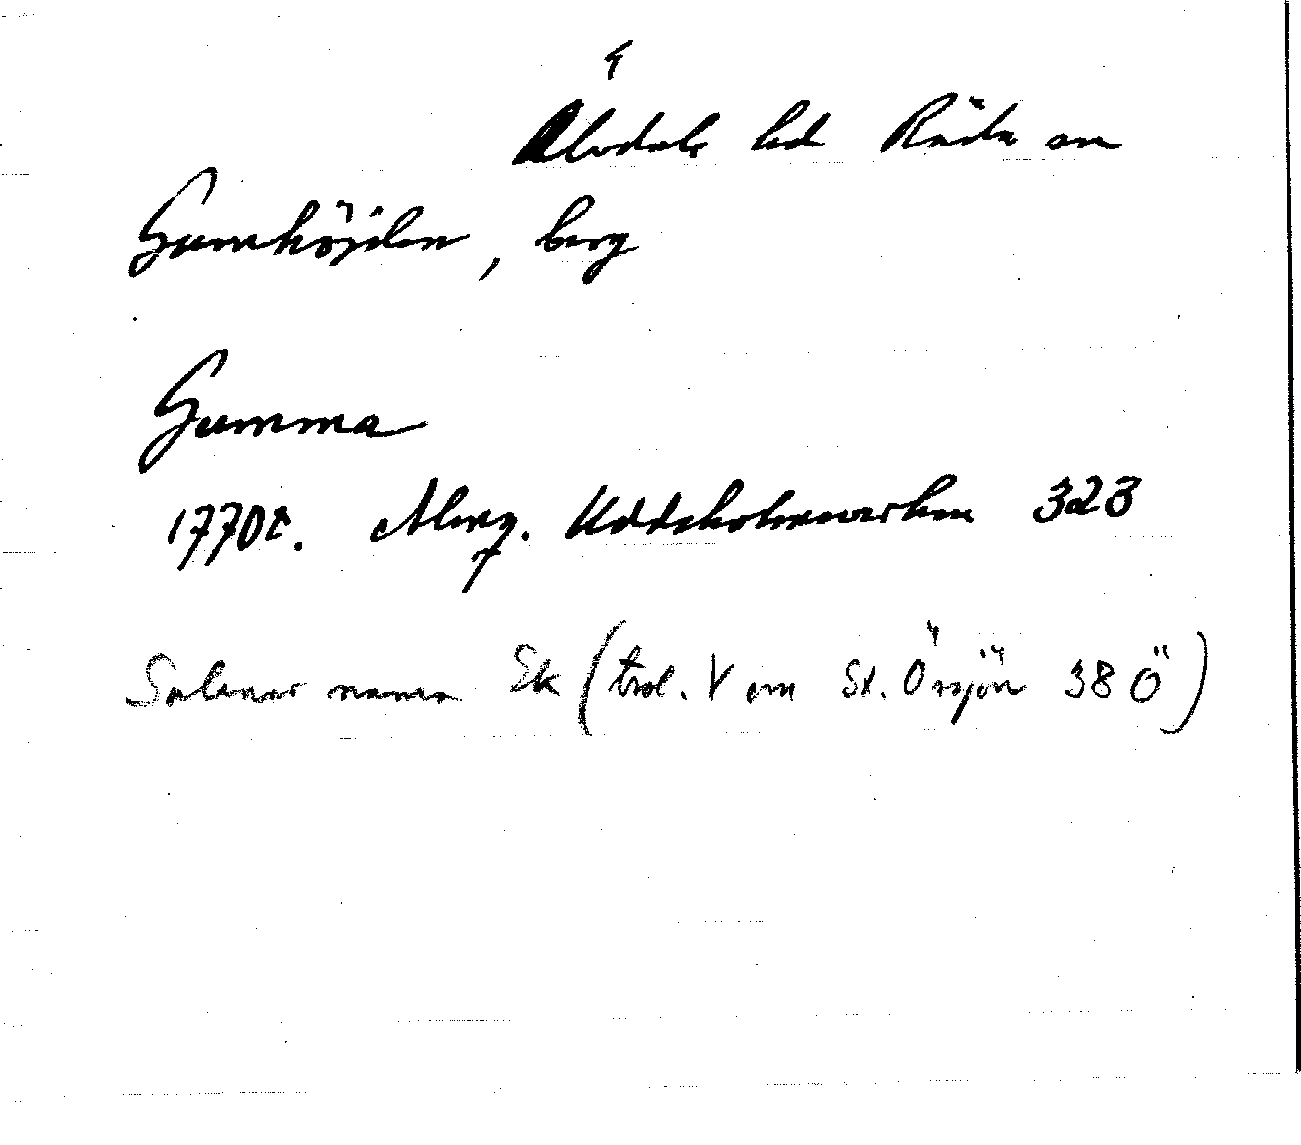 Älvdals hd Räda sn
Gumhöjden, berg
Gumma
1770t. Almq. Uddeholmsverken 323
Saknar namn Ek (trol. V om St. Örsjön 38 Ö)